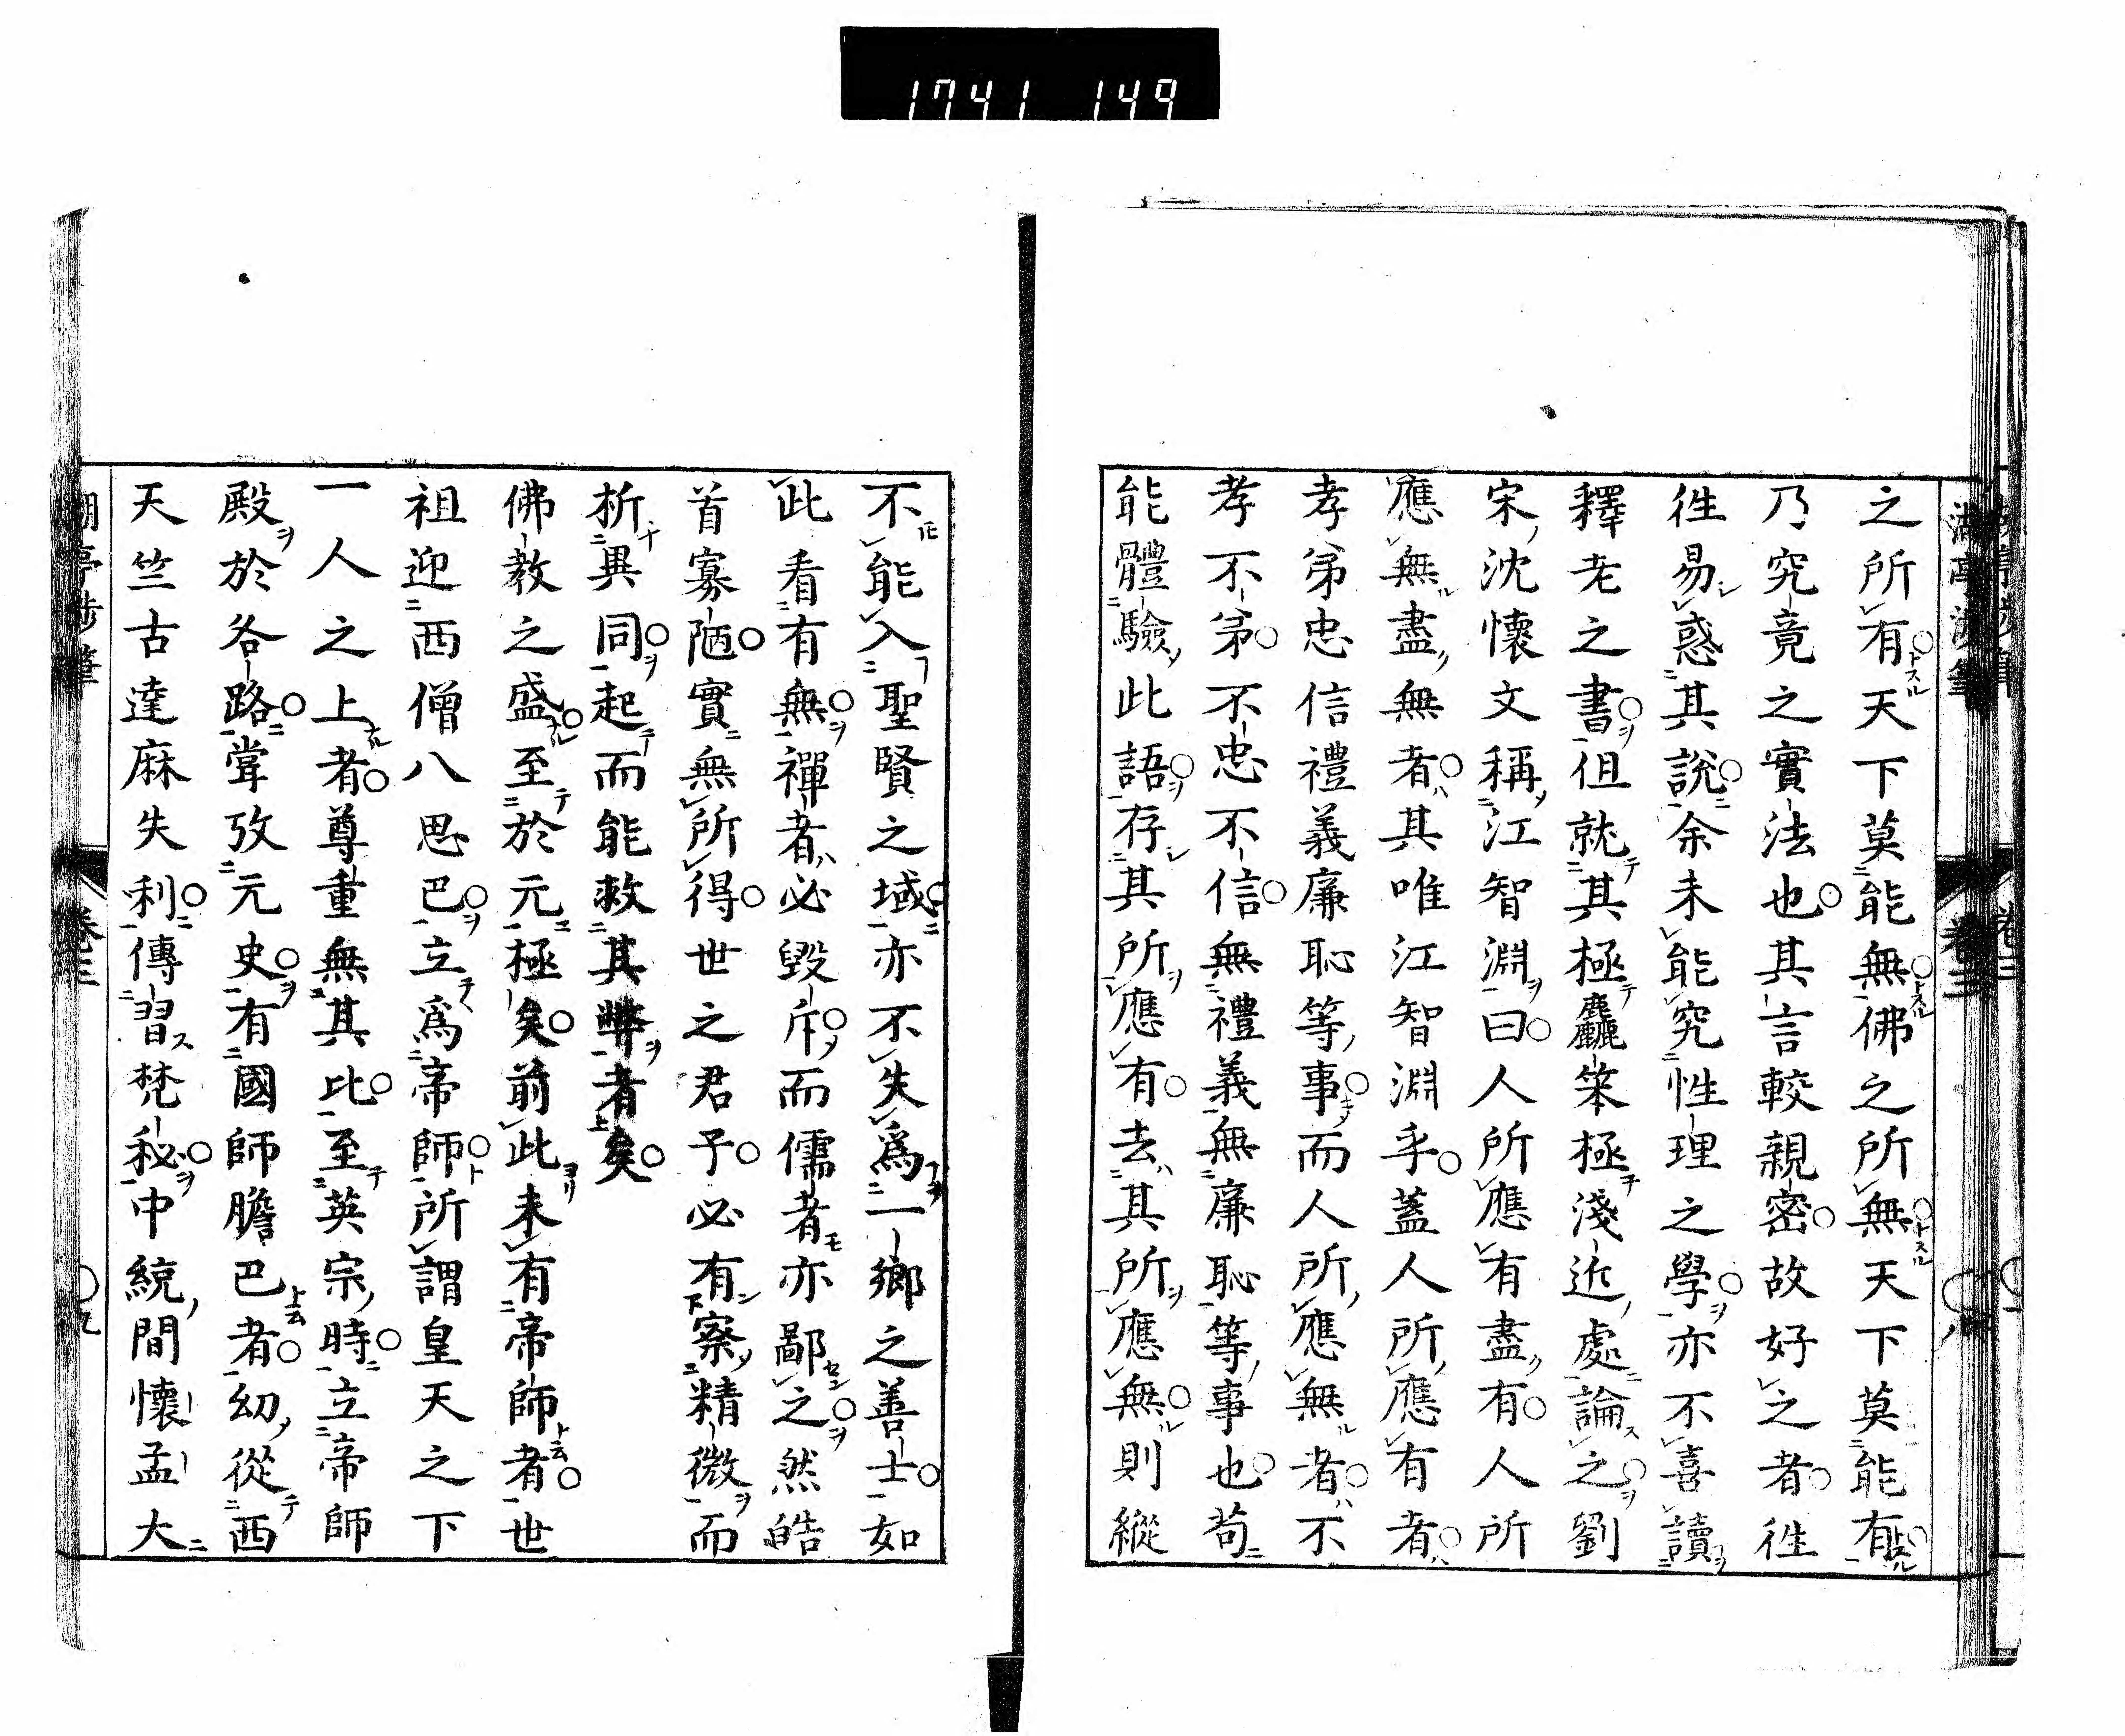 1741 149
之所有天下莫能無佛之所無天下莫能有
乃究竟之實法也其言較親密故好之者往
往易惑其說余未能究性理之學亦不喜讀
釋老之書但就其極麤笨極淺近處論之劉
宋沈懷文稱江智淵曰人所應有盡有人所
應無盡無者其唯江智淵乎蓋人所應有者
孝弟忠信禮義廉恥等事而人所應無者不
孝不弟不忠不信無禮義無廉恥等事也苟
能體驗此語存其所應有去其所應無則縱
不能入聖賢之域亦不失爲一鄉之善士如
此看有無禪者必毀斥而儒者亦鄙之然皓
首寡陋實無所得世之君子必有察精微而
析異同起而能救其弊者矣
佛教之盛至於元極矣前此未有帝師者世
祖迎西僧八思巴立爲帝師所謂皇天之下
一人之上者尊重無其比至英宗時立帝師
殿於各路嘗攷元史有國師膽巴者幼從西
天竺古達麻失利傳習梵秘中統間懷孟大
湖亭涉筆
卷三
〇九